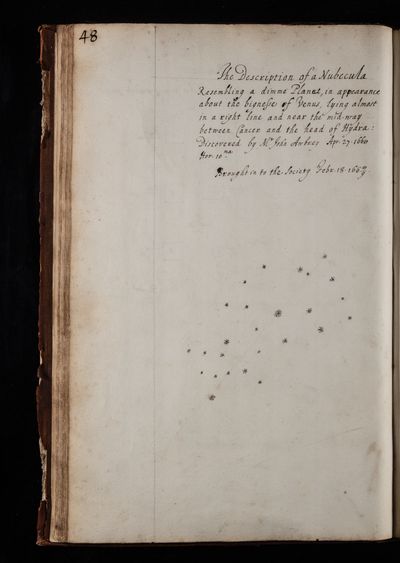 48
The Description of a Nubecula
Resembling a dimme Planet, in appearance
about the bignesse of Venus, lying almost
in a right line and near the mid-way
between Cancer and the head of Hydra:
Discovered by Mr. John Apr. 27. 1660
Hor. 10.ma
Brought in to the Society Febr. 18.